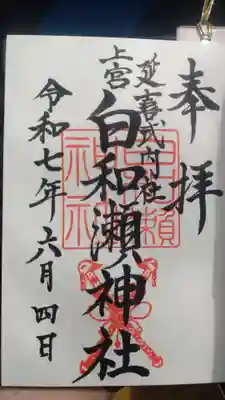 奉拝
延喜式内社
上宮
白和瀬神社
令和七年六月四日